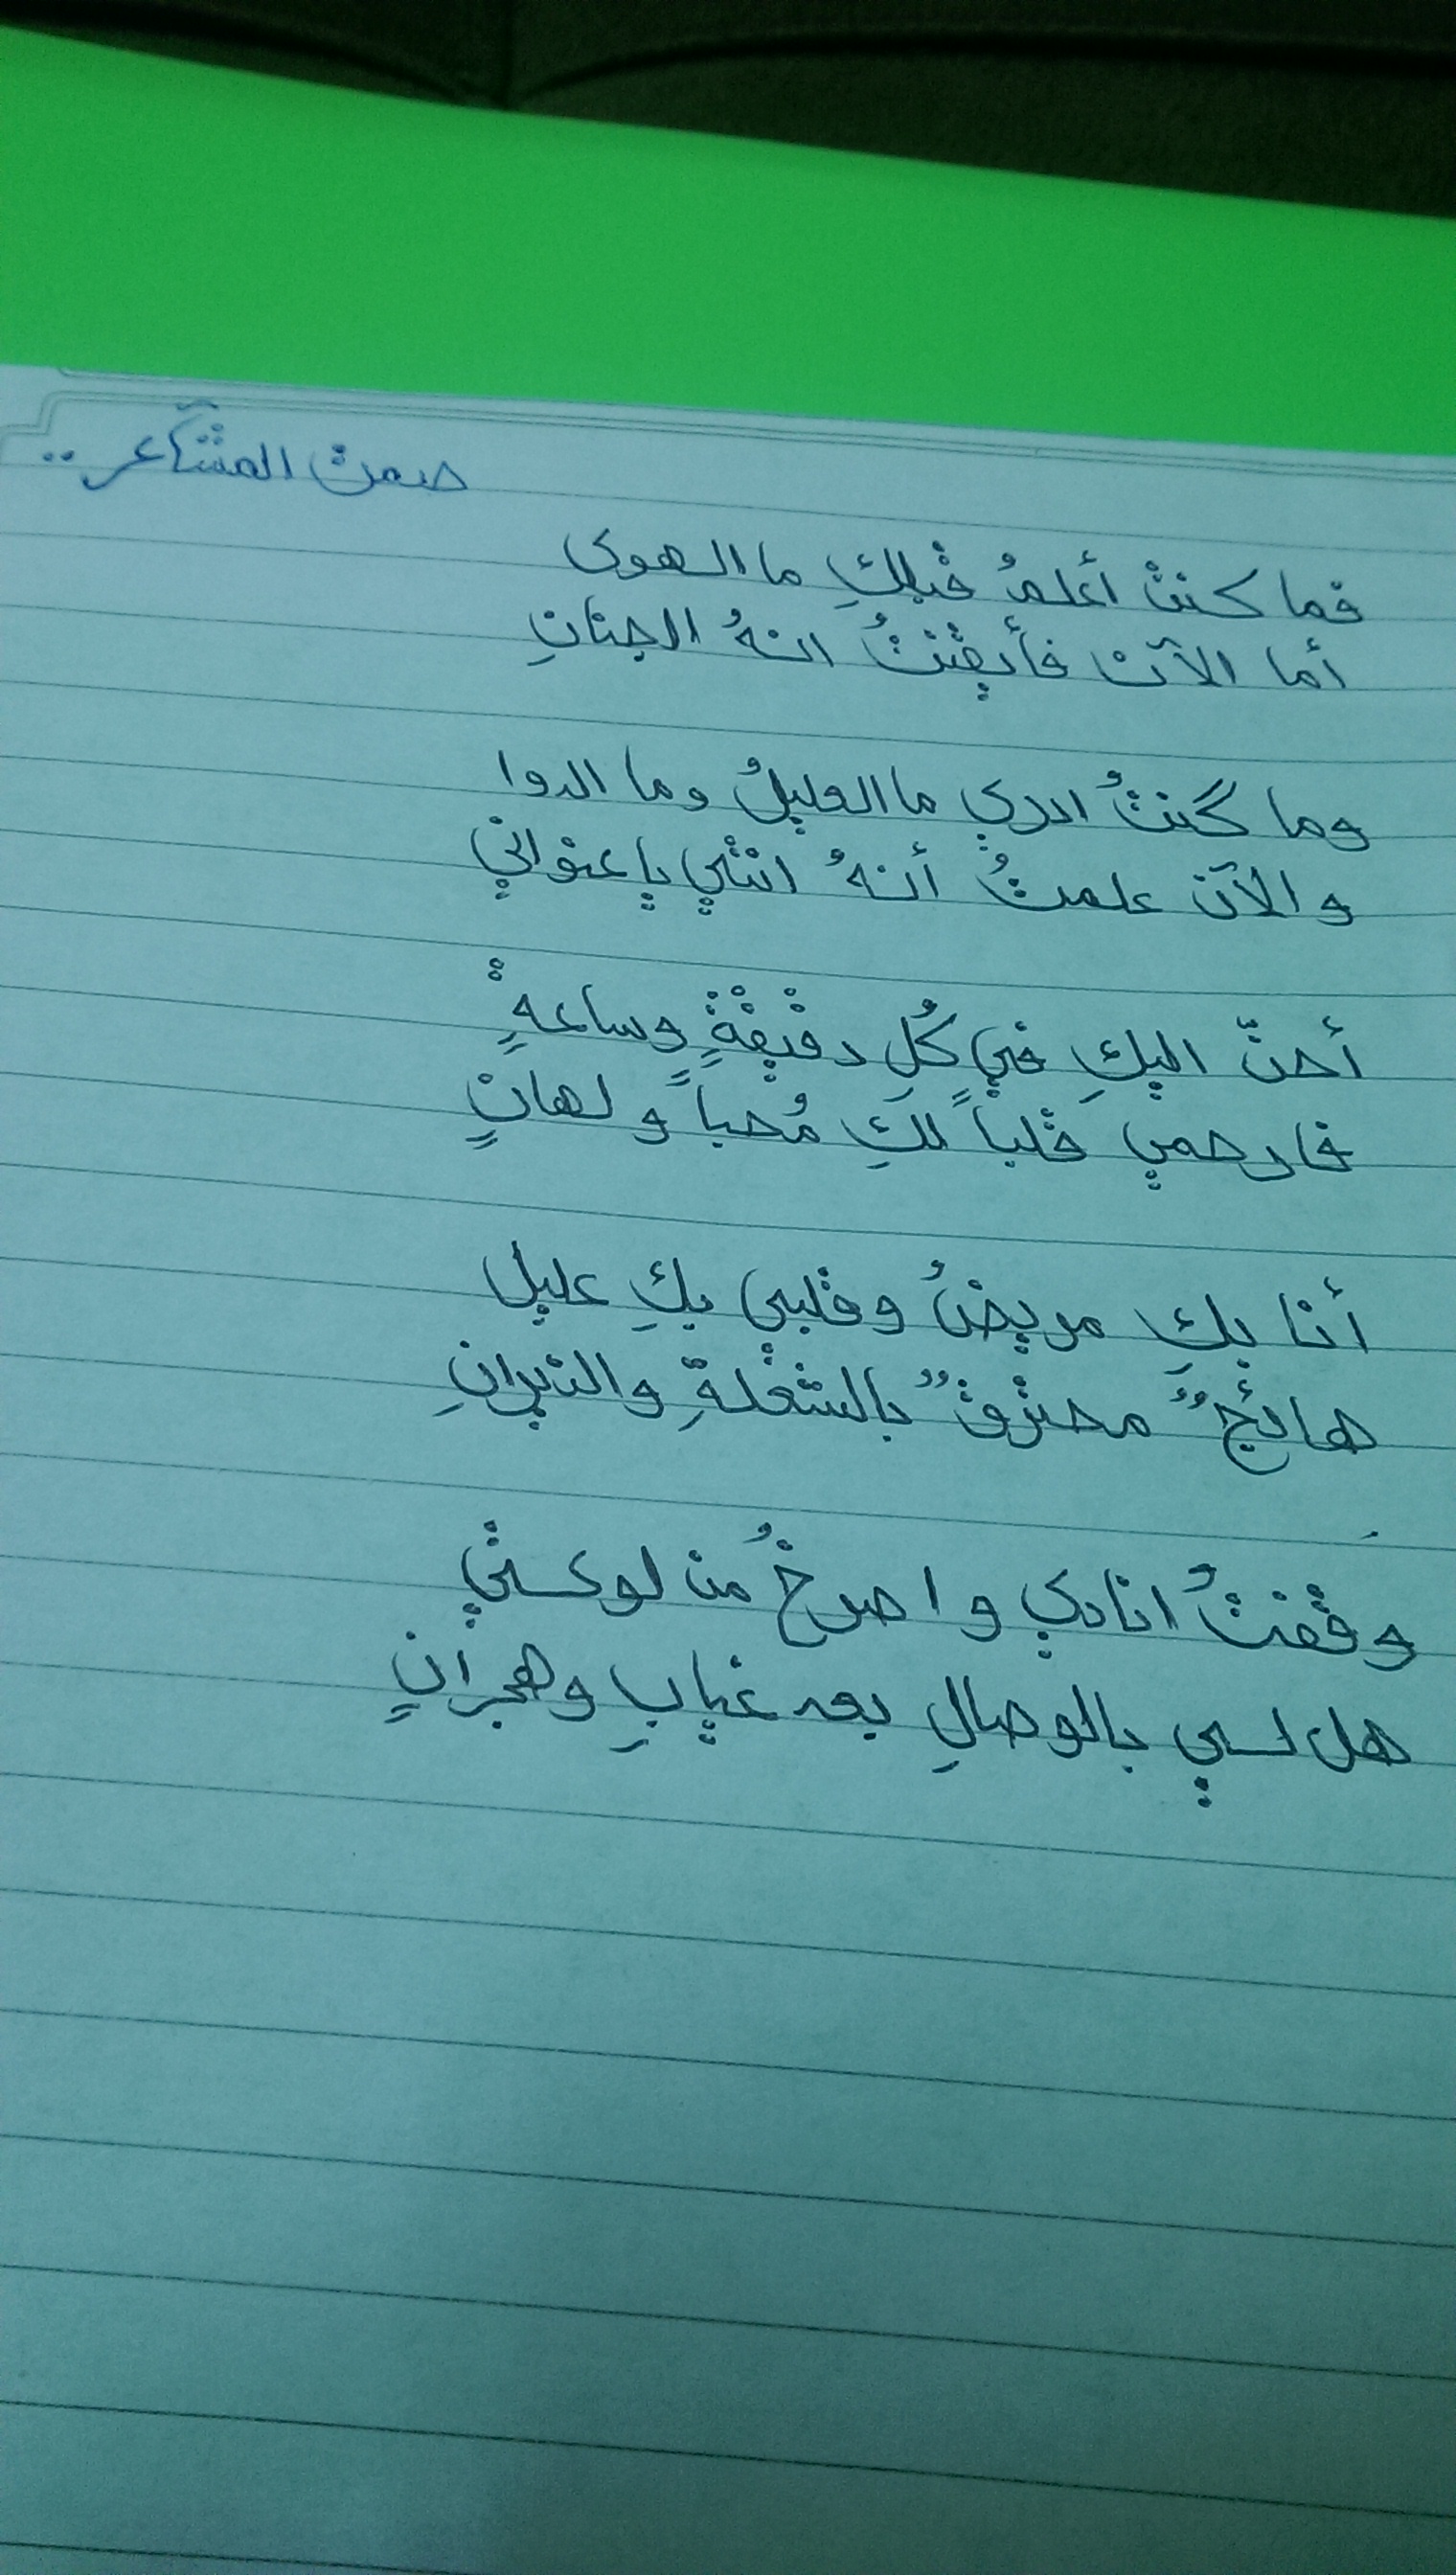 صمت المشآعر ..
فما كنت أعلمُ قبلكِ ما الهوى
أما الآن فأيقنتُ انهُ الجنانِ
وما كنتُ ادري ما العليلُ وما الدوا
والآن علمتُ أنهُ انتي يا عنواني
أحنّ اليكِ في كُلِ دقيقةٍ وساعةٍ
فارحمي قلباً لكِ مُحباً ولهانٍ
أنا بكِ مريضُ وقلبي بكِ عليل
هائجٌ محترقٌ بالشعلةِ والنيرانِ
وقفتُ انادي واصرخُ من لوعتي
هل لي بالوصالِ بعد غيابِ وهجرانٍ